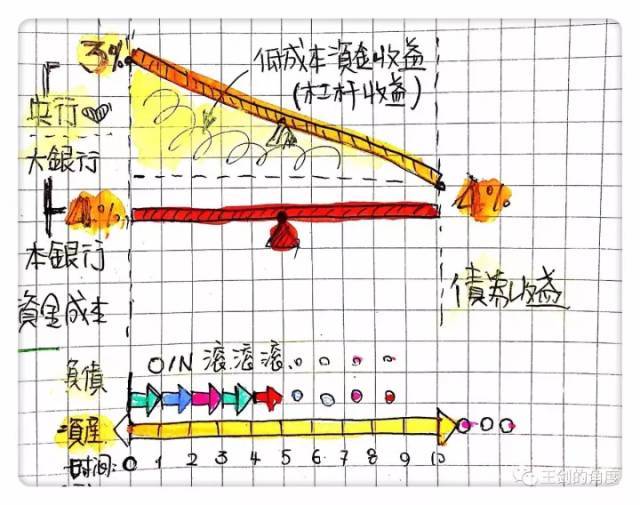 3%
低成本資金收益
(杠杆收益)
央行
大銀行
4%
4%
本銀行
資金成本
債券收益
負債
O/N 滾滾滾
資產
时间: 0 1 2 3 4 5 6 7 8 9 10
王剑的角度